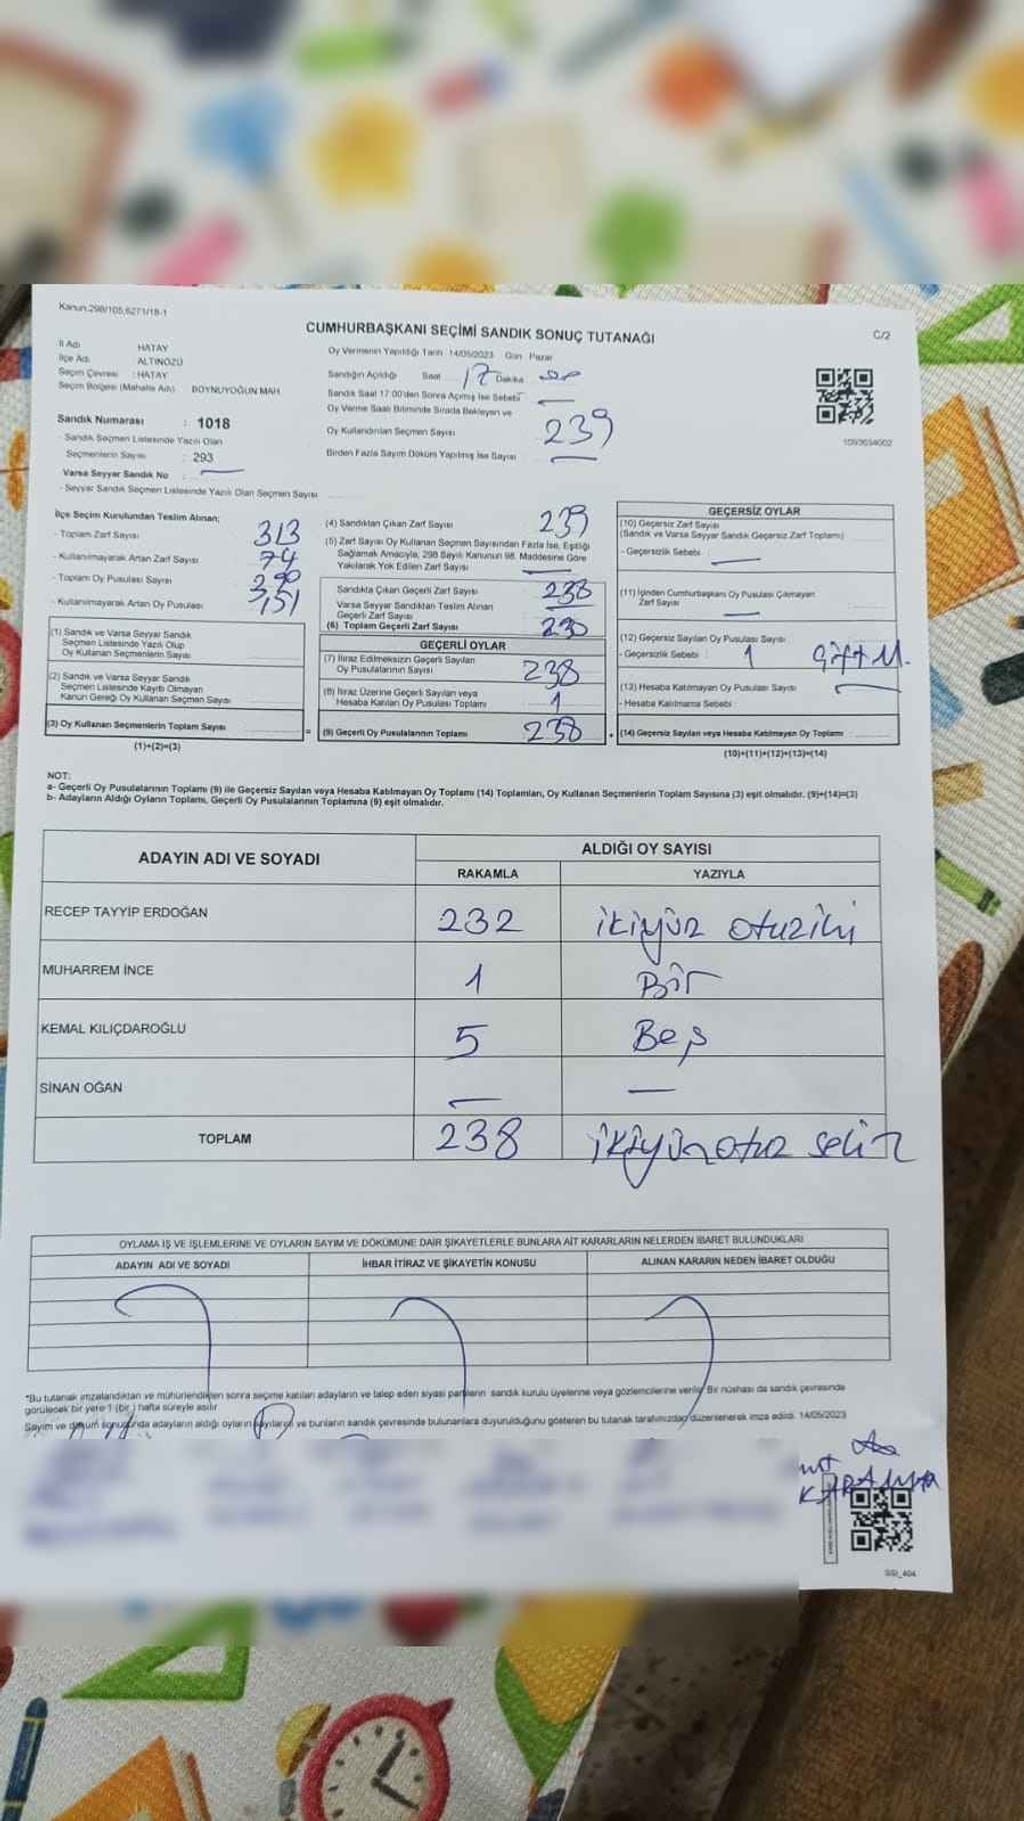 Kanun:298/105,6271/18-1
CUMHURBAŞKANI SEÇİMİ SANDIK SONUÇ TUTANAĞI
C/2
İl Adı HATAY
İlçe Adı ALTINÖZÜ
Seçim Çevresi : HATAY
Seçim Bölgesi (Mahalle Adı) : BOYNUYOĞUN MAH.
Oy Vermenin Yapıldığı Tarih : 14/05/2023 Gün : Pazar
Sandığın Açıldığı Saat 17 Dakika
Sandık Saat 17:00'den Sonra Açılmış İse Sebebi
Oy Verme Saati Bitiminde Sırada Bekleyen ve
Oy Kullandırılan Seçmen Sayısı 239
Birden Fazla Sayım Döküm Yapılmış İse Sayısı —
1093634002
Sandık Numarası : 1018
- Sandık Seçmen Listesinde Yazılı Olan
Seçmenlerin Sayısı : 293
Varsa Seyyar Sandık No : —
- Seyyar Sandık Seçmen Listesinde Yazılı Olan Seçmen Sayısı
İlçe Seçim Kurulundan Teslim Alınan;
- Toplam Zarf Sayısı 313
- Kullanılmayarak Artan Zarf Sayısı 74
- Toplam Oy Pusulası Sayısı
- Kullanılmayarak Artan Oy Pusulası
(1) Sandık ve Varsa Seyyar Sandık
Seçmen Listesinde Yazılı Olup
Oy Kullanan Seçmenlerin Sayısı
(2) Sandık ve Varsa Seyyar Sandık
Seçmen Listesinde Kayıtlı Olmayan
Kanun Gereği Oy Kullanan Seçmen Sayısı
(3) Oy Kullanan Seçmenlerin Toplam Sayısı
(1)+(2)=(3)
(4) Sandıktan Çıkan Zarf Sayısı 239
(5) Zarf Sayısı Oy Kullanan Seçmen Sayısından Fazla İse, Eşitliği
Sağlamak Amacıyla, 298 Sayılı Kanunun 98. Maddesine Göre
Yakılarak Yok Edilen Zarf Sayısı —
Sandıkta Çıkan Geçerli Zarf Sayısı 238
Varsa Seyyar Sandıktan Teslim Alınan
Geçerli Zarf Sayısı
(6) Toplam Geçerli Zarf Sayısı
GEÇERLİ OYLAR
(7) İtiraz Edilmeksizin Geçerli Sayılan
Oy Pusulalarının Sayısı 238
(8) İtiraz Üzerine Geçerli Sayılan veya
Hesaba Katılan Oy Pusulası Toplamı 1
(9) Geçerli Oy Pusulalarının Toplamı 238
GEÇERSİZ OYLAR
(10) Geçersiz Zarf Sayısı
(Sandık ve Varsa Seyyar Sandık Geçersiz Zarf Toplamı)
- Geçersizlik Sebebi : —
(11) İçinden Cumhurbaşkanı Oy Pusulası Çıkmayan
Zarf Sayısı —
(12) Geçersiz Sayılan Oy Pusulası Sayısı
- Geçersizlik Sebebi : 1
(13) Hesaba Katılmayan Oy Pusulası Sayısı
- Hesaba Katılmama Sebebi :
(14) Geçersiz Sayılan veya Hesaba Katılmayan Oy Toplamı
(10)+(11)+(12)+(13)=(14)
NOT:
a- Geçerli Oy Pusulalarının Toplamı (9) ile Geçersiz Sayılan veya Hesaba Katılmayan Oy Toplamı (14) Toplamları, Oy Kullanan Seçmenlerin Toplam Sayısına (3) eşit olmalıdır. (9)+(14)=(3)
b- Adayların Aldığı Oyların Toplamı, Geçerli Oy Pusulalarının Toplamına (9) eşit olmalıdır.
ADAYIN ADI VE SOYADI
ALDIĞI OY SAYISI
RAKAMLA YAZIYLA
RECEP TAYYİP ERDOĞAN 232 ikiyüz otuziki
MUHARREM İNCE 1 Bir
KEMAL KILIÇDAROĞLU 5 Beş
SİNAN OĞAN — —
TOPLAM 238 ikiyüzotuz sekiz
OYLAMA İŞ VE İŞLEMLERİNE VE OYLARIN SAYIM VE DÖKÜMÜNE DAİR ŞİKAYETLERLE BUNLARA AİT KARARLARIN NELERDEN İBARET BULUNDUKLARI
ADAYIN ADI VE SOYADI İHBAR İTİRAZ VE ŞİKAYETİN KONUSU ALINAN KARARIN NEDEN İBARET OLDUĞU
*Bu tutanak imzalandıktan ve mühürlendikten sonra seçime katılan adayların ve talep eden siyasi partilerin sandık kurulu üyelerine veya gözlemcilerine verilir. Bir nüshası da sandık çevresinde
görülecek bir yere 1 (bir) hafta süreyle asılır.
Sayım ve döküm sonucunda adayların aldığı oyların sayılarını ve bunların sandık çevresinde bulunanlara duyurulduğunu gösteren bu tutanak tarafımızdan düzenlenerek imza edildi. 14/05/2023
SSI_404